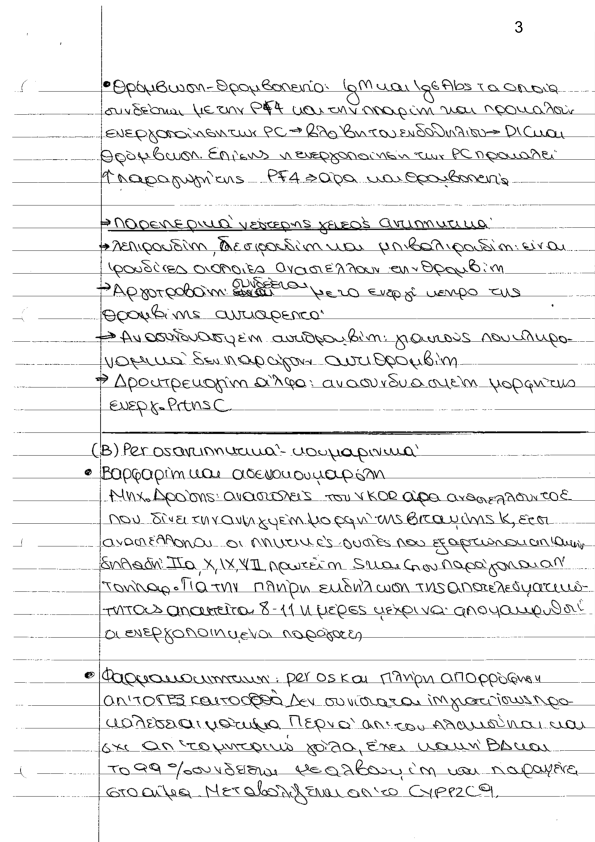 3
• Θρόμβωση-Θρομβοπενία: IgM και IgG Abs τα οποία
συνδέονται με την PF4 και την ηπαρίνη και προκαλούν
ενεργοποίηση των PC → βλάβη του ενδοθηλίου → DIC και
Θρόμβωση. Επίσης η ενεργοποίηση των PC προκαλεί
↑ παραγωγή της PF4 → άρα και Θρομβοπενία
→ Παρεντερικά νεότερης γενεάς αντιπηκτικά
→ Λεπιρουδίνη, Δεσιρουδίνη και μπιβαλιρουδίνη: είναι
ιρουδίνες οι οποίες αναστέλλουν την Θρομβίνη
→ Αργατροβάνη: συνδέεται με το ενεργό κέντρο της
Θρομβίνης αντιστρεπτά
→ Ανασυνδυασμένη αντιθρομβίνη: για αυτούς που κληρο-
νομικά δεν παράγουν αντιθρομβίνη
→ Δροτρεκογίνη άλφα: ανασυνδυασμένη μορφή της
ενεργ. Prtns C
(B) Per os αντιπηκτικά - κουμαρινικά
• Βαρφαρίνη και ασενοκουμαρόλη
Μηχ. Δράσης: αναστολείς του VKOR άρα αναστέλλουν το Ε
που δίνει την ανηγμένη μορφή της βιταμίνης Κ, έτσι
αναστέλλονται οι πηκτικές ουσίες που εξαρτώνται απ'
δηλαδή ΙΙα, Χ, ΙΧ, VII πρωτεΐνη S και C που παράγονται απ'
το ήπαρ. Για την πλήρη εκδήλωση της αποτελεσματικό-
τητας απαιτείται 8-11 ημέρες μέχρι να απομακρυνθούν
οι ενεργοποιημένοι παράγοντες
• Φαρμακοκινητική: per os και πλήρη απορρόφηση
απ' το ΓΕΣ και το ορθό. Δεν συνίσταται im γιατί ίσως προ-
καλέσει αιμάτωμα. Περνά απ' τον πλακούντα και
όχι απ' το μητρικό γάλα, έχει κακή ΒΔ και
το 99% συνδέεται με αλβουμίνη και παραμένει
στο αίμα. Μεταβολίζεται απ' το CYPP2C9.